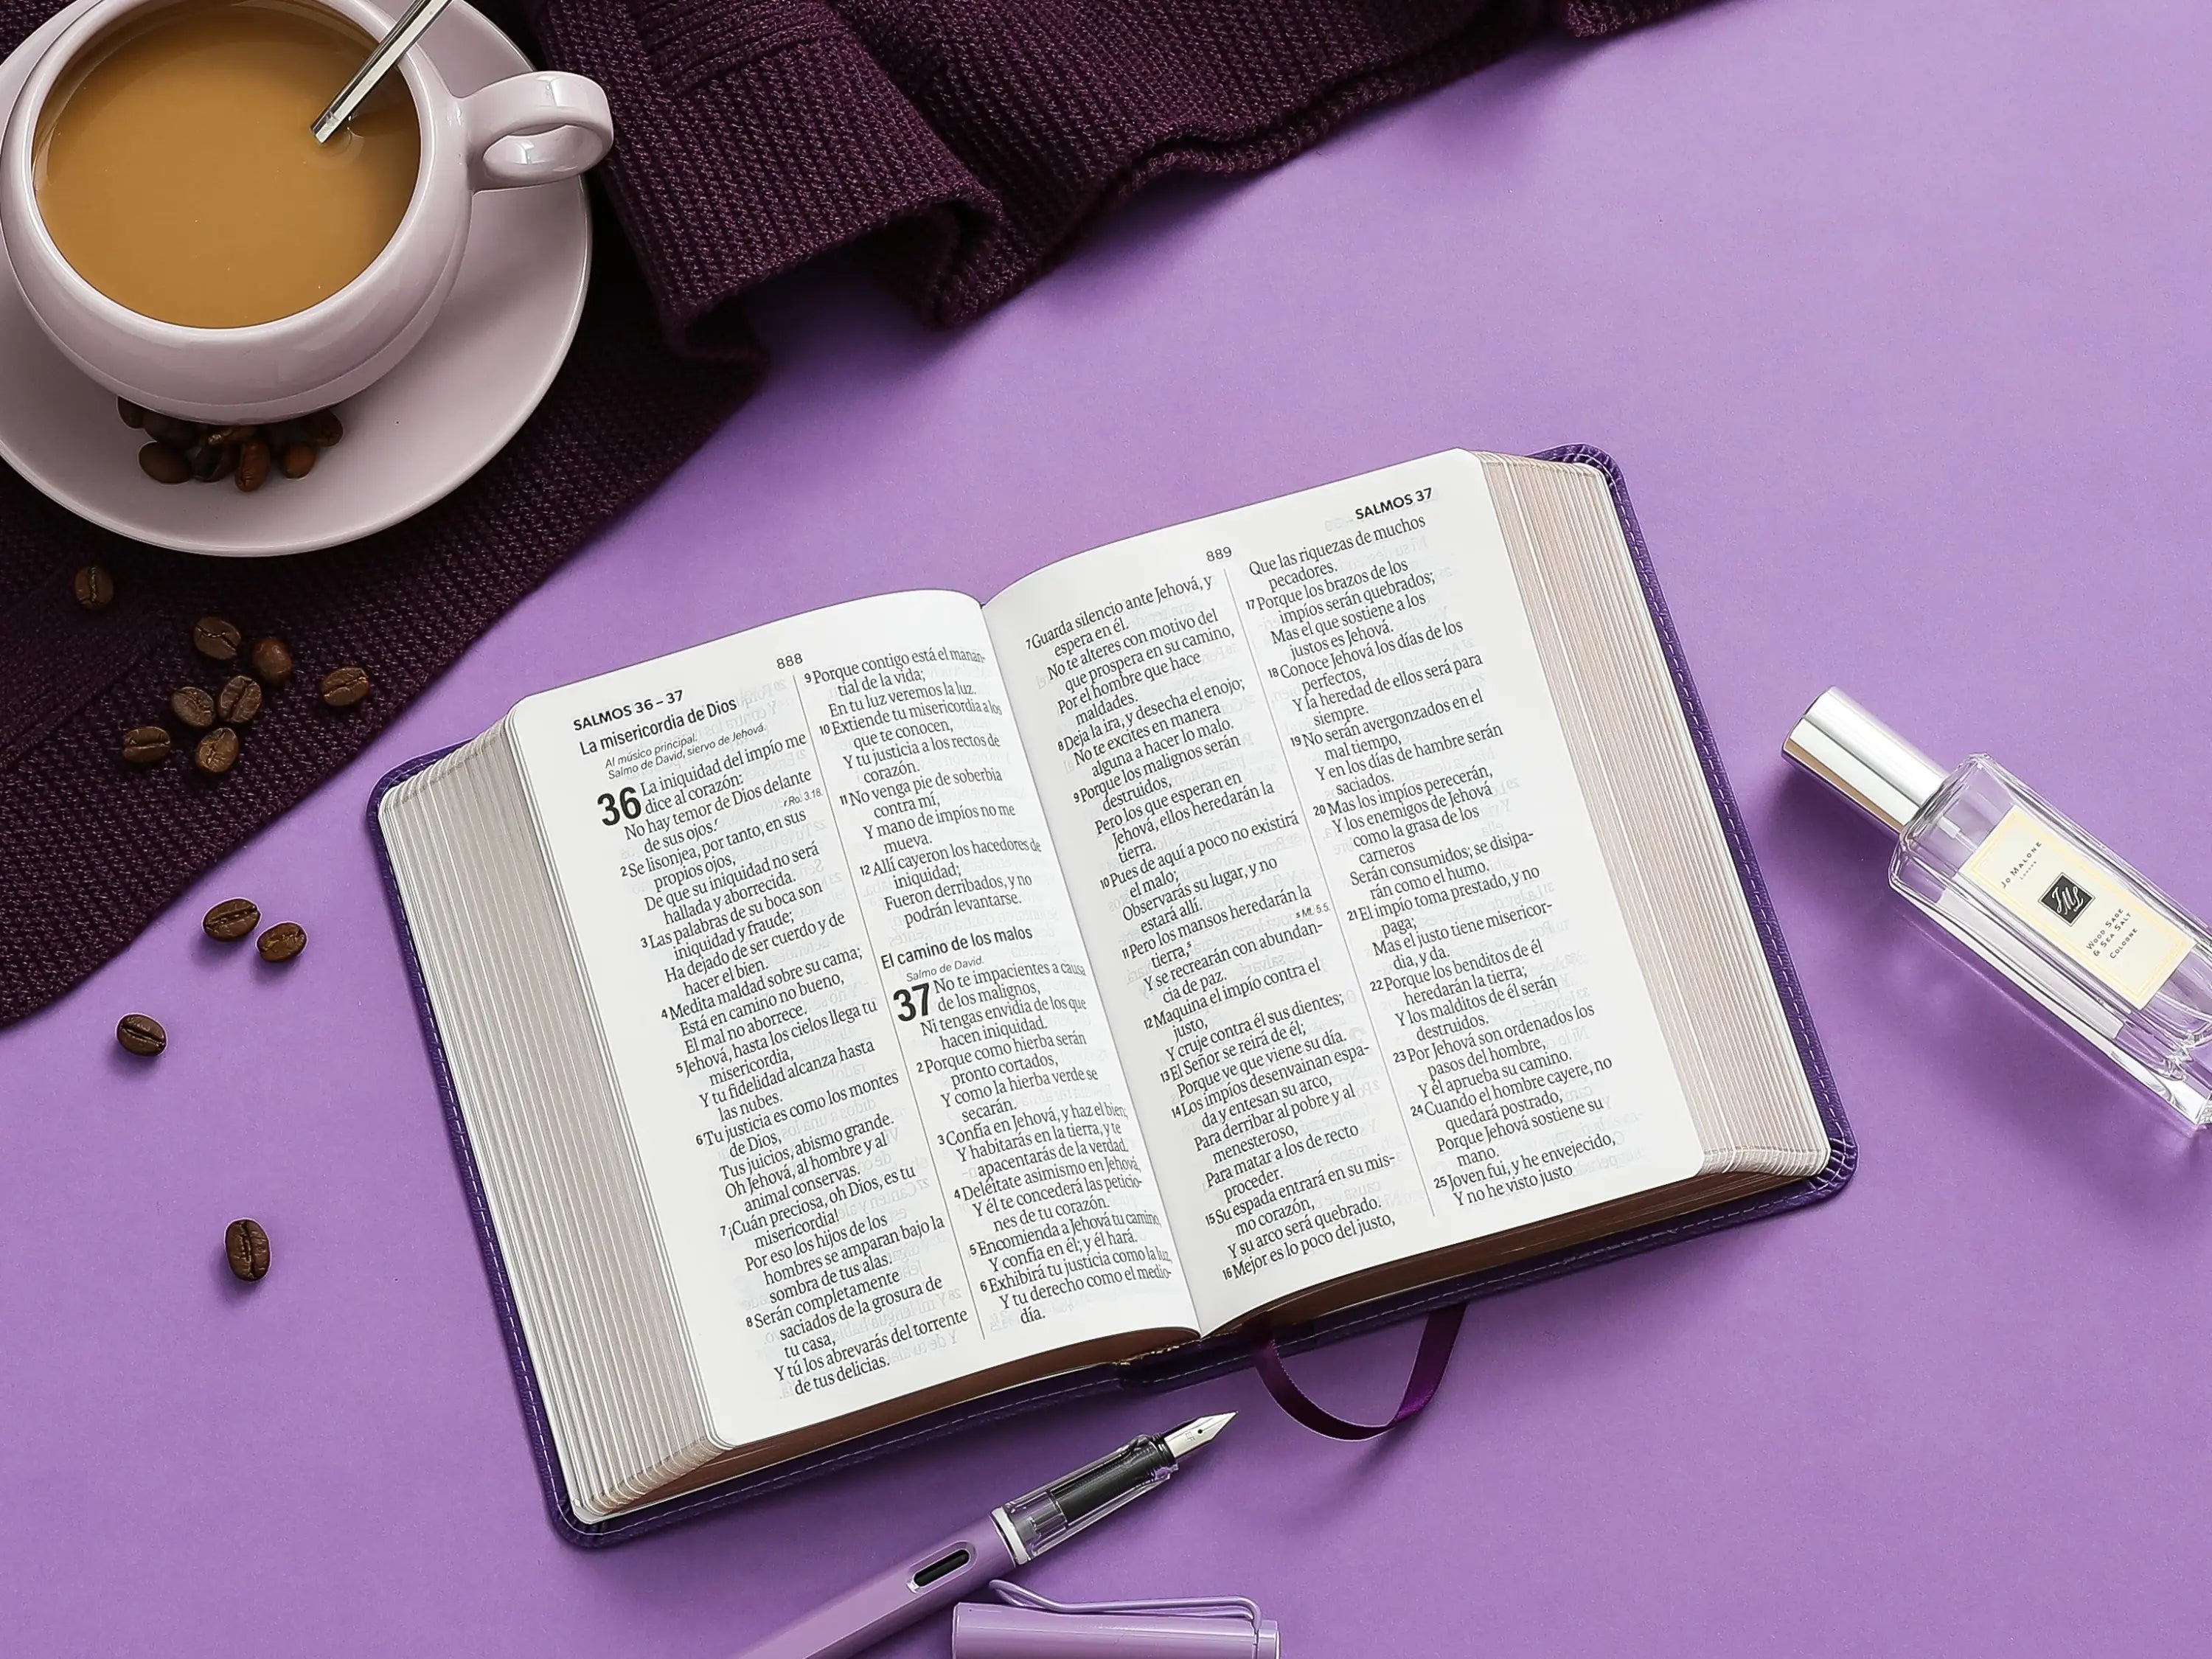 888
SALMOS 36 – 37
La misericordia de Dios
Al músico principal.
Salmo de David, siervo de Jehová.
36 La iniquidad del impío me
dice al corazón:
No hay temor de Dios delante
de sus ojos.r
r Ro. 3.18.
2 Se lisonjea, por tanto, en sus
propios ojos,
De que su iniquidad no será
hallada y aborrecida.
3 Las palabras de su boca son
iniquidad y fraude;
Ha dejado de ser cuerdo y de
hacer el bien.
4 Medita maldad sobre su cama;
Está en camino no bueno,
El mal no aborrece.
5 Jehová, hasta los cielos llega tu
misericordia,
Y tu fidelidad alcanza hasta
las nubes.
6 Tu justicia es como los montes
de Dios,
Tus juicios, abismo grande.
Oh Jehová, al hombre y al
animal conservas.
7 ¡Cuán preciosa, oh Dios, es tu
misericordia!
Por eso los hijos de los
hombres se amparan bajo la
sombra de tus alas.
8 Serán completamente
saciados de la grosura de
tu casa,
Y tú los abrevarás del torrente
de tus delicias.
9 Porque contigo está el manan-
tial de la vida;
En tu luz veremos la luz.
10 Extiende tu misericordia a los
que te conocen,
Y tu justicia a los rectos de
corazón.
11 No venga pie de soberbia
contra mí,
Y mano de impíos no me
mueva.
12 Allí cayeron los hacedores de
iniquidad;
Fueron derribados, y no
podrán levantarse.
El camino de los malos
Salmo de David.
37 No te impacientes a causa
de los malignos,
Ni tengas envidia de los que
hacen iniquidad.
2 Porque como hierba serán
pronto cortados,
Y como la hierba verde se
secarán.
3 Confía en Jehová, y haz el bien;
Y habitarás en la tierra, y te
apacentarás de la verdad.
4 Deléitate asimismo en Jehová,
Y él te concederá las peticio-
nes de tu corazón.
5 Encomienda a Jehová tu camino,
Y confía en él; y él hará.
6 Exhibirá tu justicia como la luz,
Y tu derecho como el medio-
día.
889
SALMOS 37
7 Guarda silencio ante Jehová, y
espera en él.
No te alteres con motivo del
que prospera en su camino,
Por el hombre que hace
maldades.
8 Deja la ira, y desecha el enojo;
No te excites en manera
alguna a hacer lo malo.
9 Porque los malignos serán
destruidos,
Pero los que esperan en
Jehová, ellos heredarán la
tierra.
10 Pues de aquí a poco no existirá
el malo;
Observarás su lugar, y no
estará allí.
11 Pero los mansos heredarán la
tierra,s
s Mt. 5.5.
Y se recrearán con abundan-
cia de paz.
12 Maquina el impío contra el
justo,
Y cruje contra él sus dientes;
13 El Señor se reirá de él;
Porque ve que viene su día.
14 Los impíos desenvainan espa-
da y entesan su arco,
Para derribar al pobre y al
menesteroso,
Para matar a los de recto
proceder.
15 Su espada entrará en su mis-
mo corazón,
Y su arco será quebrado.
16 Mejor es lo poco del justo,
Que las riquezas de muchos
pecadores.
17 Porque los brazos de los
impíos serán quebrados;
Mas el que sostiene a los
justos es Jehová.
18 Conoce Jehová los días de los
perfectos,
Y la heredad de ellos será para
siempre.
19 No serán avergonzados en el
mal tiempo,
Y en los días de hambre serán
saciados.
20 Mas los impíos perecerán,
Y los enemigos de Jehová
como la grasa de los
carneros
Serán consumidos; se disipa-
rán como el humo.
21 El impío toma prestado, y no
paga;
Mas el justo tiene misericor-
dia, y da.
22 Porque los benditos de él
heredarán la tierra;
Y los malditos de él serán
destruidos.
23 Por Jehová son ordenados los
pasos del hombre,
Y él aprueba su camino.
24 Cuando el hombre cayere, no
quedará postrado,
Porque Jehová sostiene su
mano.
25 Joven fui, y he envejecido,
Y no he visto justo
JO MALONE
LONDON
JML
WOOD SAGE
& SEA SALT
COLOGNE